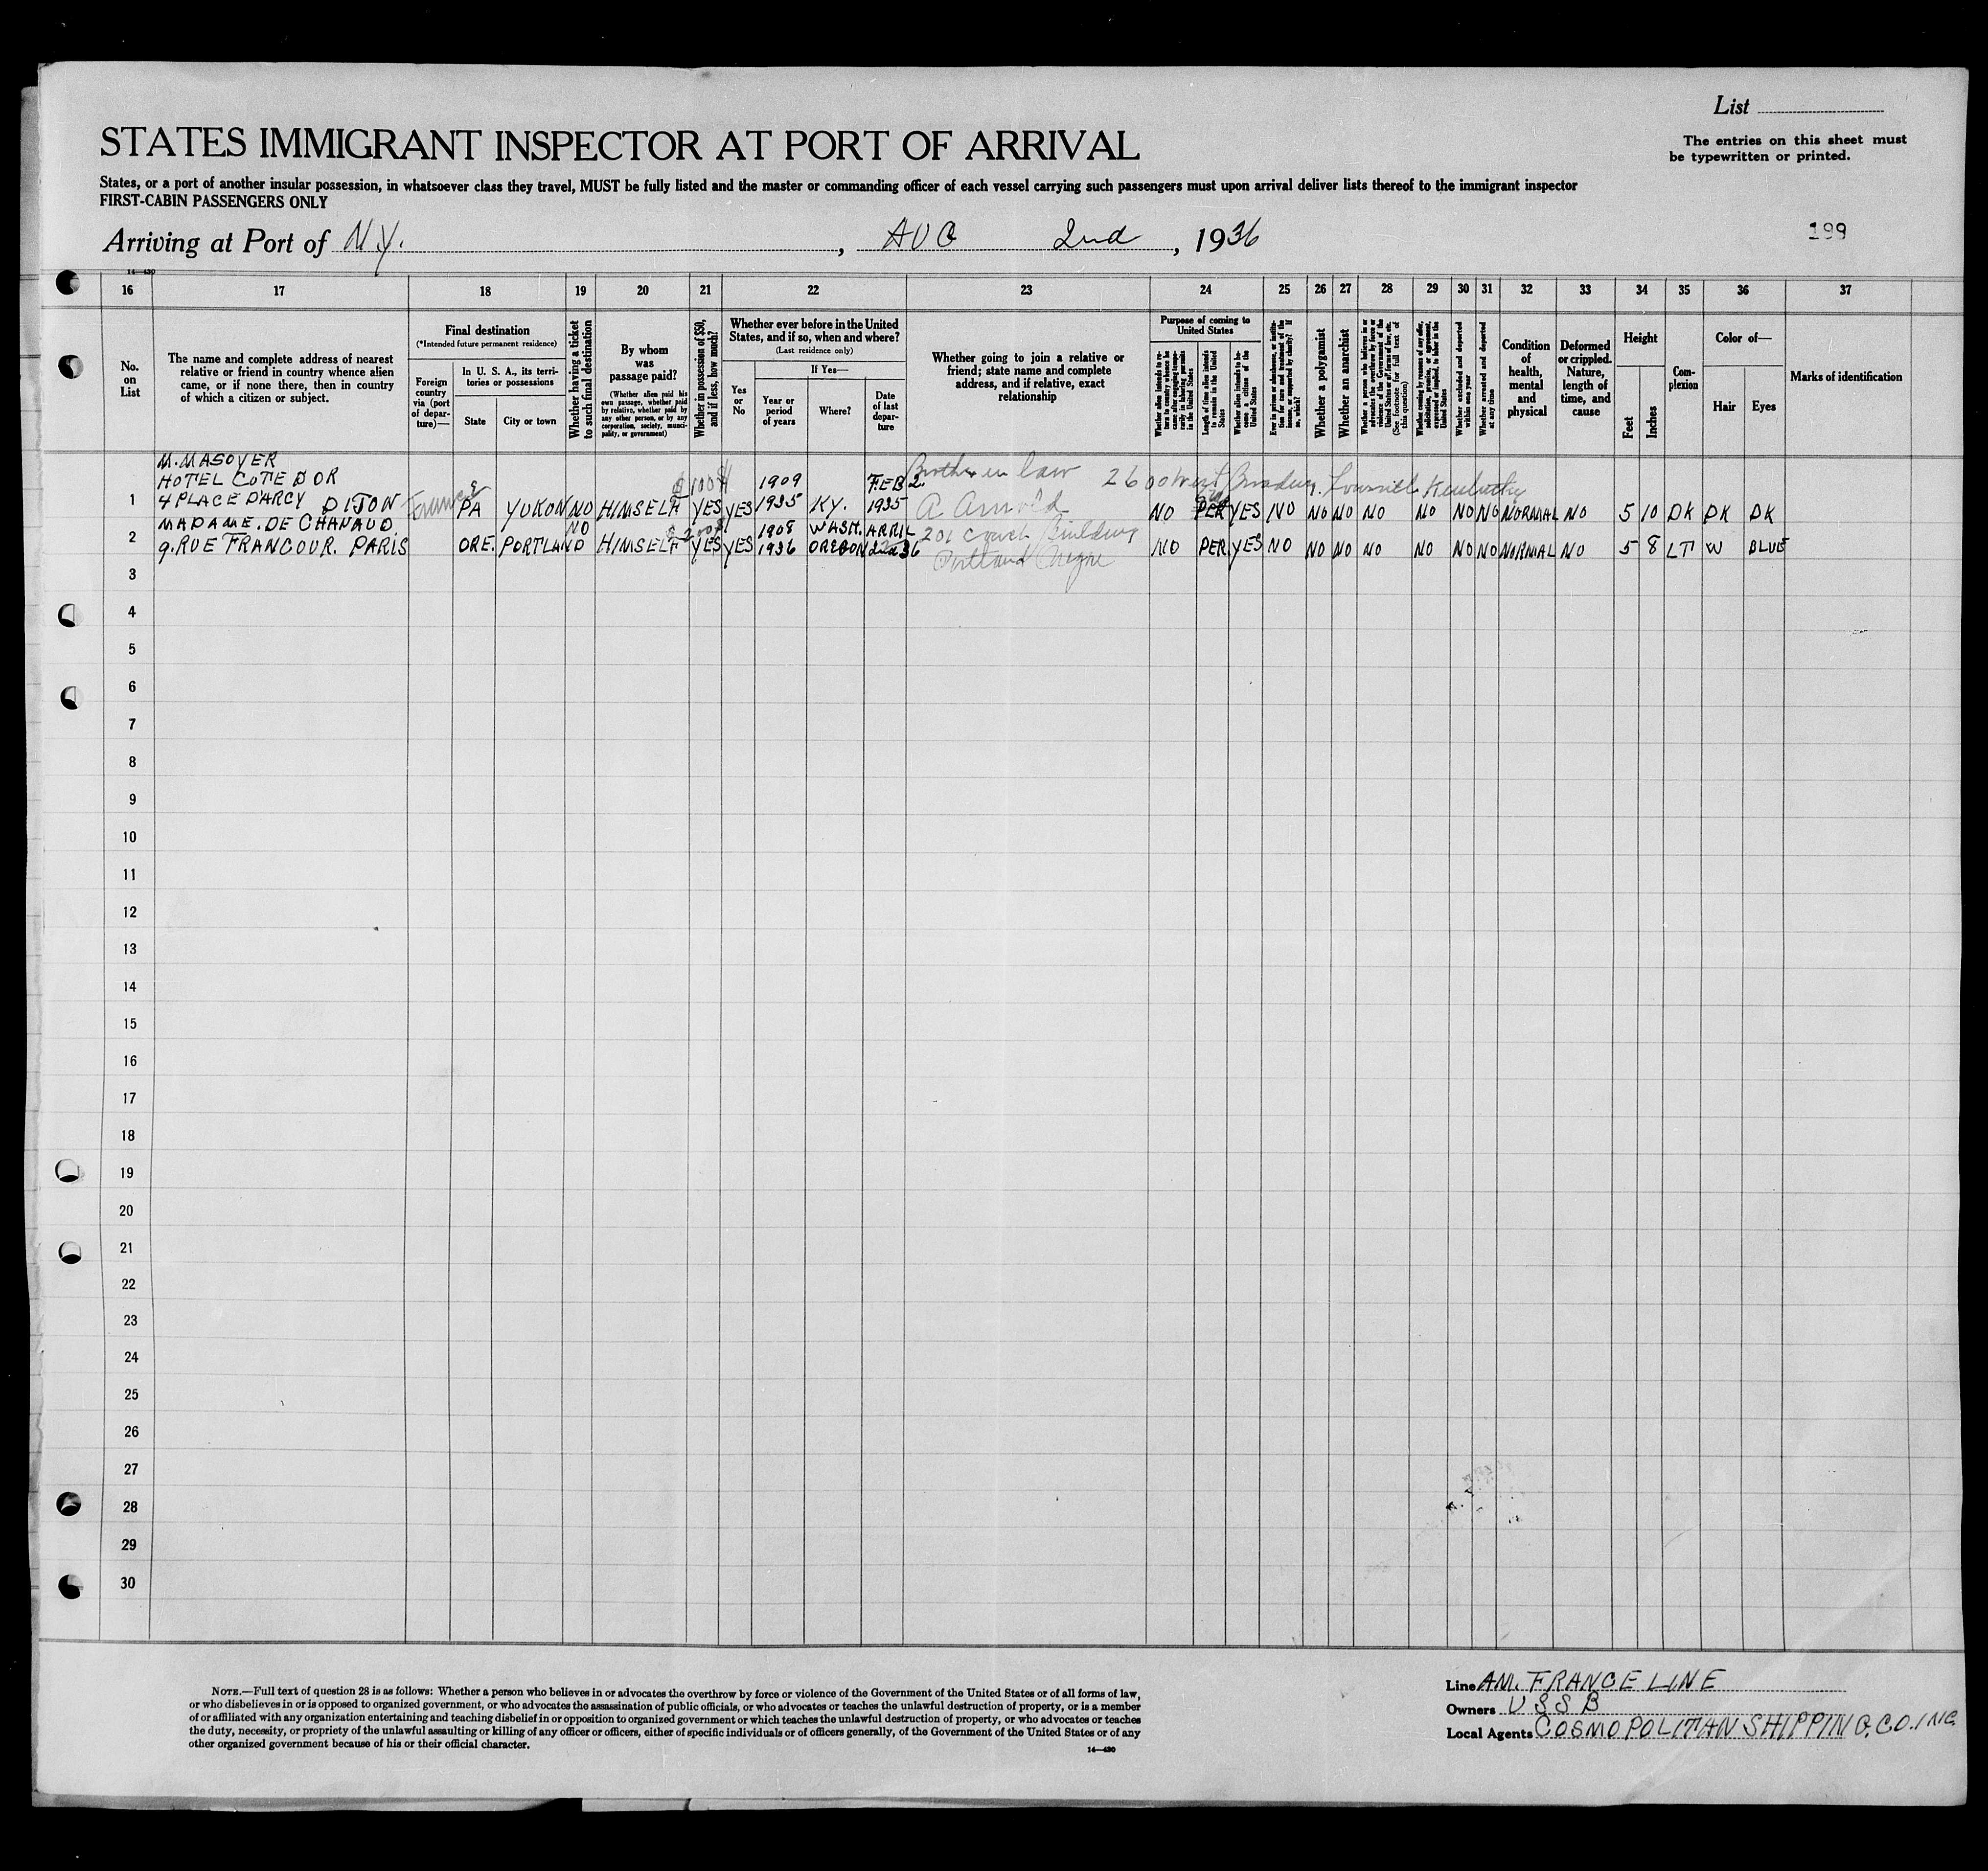 List
STATES IMMIGRANT INSPECTOR AT PORT OF ARRIVAL
The entries on this sheet must
be typewritten or printed.
States, or a port of another insular possession, in whatsoever class they travel, MUST be fully listed and the master or commanding officer of each vessel carrying such passengers must upon arrival deliver lists thereof to the immigrant inspector
FIRST-CABIN PASSENGERS ONLY
Arriving at Port of N.Y., AUG 2nd, 1936
199
14—430
16 17 18 19 20 21 22 23 24 25 26 27 28 29 30 31 32 33 34 35 36 37
No. on List
The name and complete address of nearest
relative or friend in country whence alien
came, or if none there, then in country
of which a citizen or subject.
Final destination
(*Intended future permanent residence)
Foreign country via (port of departure)—
In U. S. A., its territories or possessions
State
City or town
Whether having a ticket to such final destination
By whom was passage paid?
(Whether alien paid his own passage, whether paid by relative, whether paid by any other person, or by any corporation, society, municipality, or government)
Whether in possession of $50, and if less, how much?
Whether ever before in the United States, and if so, when and where?
(Last residence only)
Yes or No
If Yes—
Year or period of years
Where?
Date of last departure
Whether going to join a relative or
friend; state name and complete
address, and if relative, exact
relationship
Purpose of coming to United States
Whether alien intends to return to country whence he came after engaging temporarily in laboring pursuits in the United States
Length of time alien intends to remain in the United States
Whether alien intends to become a citizen of the United States
Ever in prison or almshouse, or institution for care and treatment of the insane, or supported by charity? If so, which?
Whether a polygamist
Whether an anarchist
Whether a person who believes in or advocates the overthrow by force or violence of the Government of the United States or all forms of law, etc. (See footnote for full text of this question)
Whether coming by reason of any offer, solicitation, promise, or agreement, expressed or implied, to labor in the United States
Whether excluded and deported within one year
Whether arrested and deported at any time
Condition of health, mental and physical
Deformed or crippled. Nature, length of time, and cause
Height
Feet
Inches
Complexion
Color of—
Hair
Eyes
Marks of identification
M. MASOYER
HOTEL COTE D OR
4 PLACE D'ARCY DIJON
1 France PA YUKON NO HIMSELF $100 YES YES 1909 1935 KY. FEB 2 1935
Brother in law 2600 West Broadway, Louisville Kentucky
A Arnold
NO PER YES NO NO NO NO NO NO NO NORMAL NO 5 10 DK DK DK
MADAME. DE CHANAUD
9. RUE FRANCOUR. PARIS
2 ORE. PORTLAND NO HIMSELF YES YES 1908 1936 WASH. OREGON APRIL 2nd 36
201 Couch Building
Portland Oregon
NO PER. YES NO NO NO NO NO NO NO NORMAL NO 5 8 LT W BLUE
3
4
5
6
7
8
9
10
11
12
13
14
15
16
17
18
19
20
21
22
23
24
25
26
27
28
29
30
NOTE.—Full text of question 28 is as follows: Whether a person who believes in or advocates the overthrow by force or violence of the Government of the United States or of all forms of law,
or who disbelieves in or is opposed to organized government, or who advocates the assassination of public officials, or who advocates or teaches the unlawful destruction of property, or is a member
of or affiliated with any organization entertaining and teaching disbelief in or opposition to organized government or which teaches the unlawful destruction of property, or who advocates or teaches
the duty, necessity, or propriety of the unlawful assaulting or killing of any officer or officers, either of specific individuals or of officers generally, of the Government of the United States or of any
other organized government because of his or their official character.
14—430
Line AM. FRANCE LINE
Owners U S S B
Local Agents COSMOPOLITAN SHIPPING. CO. INC.